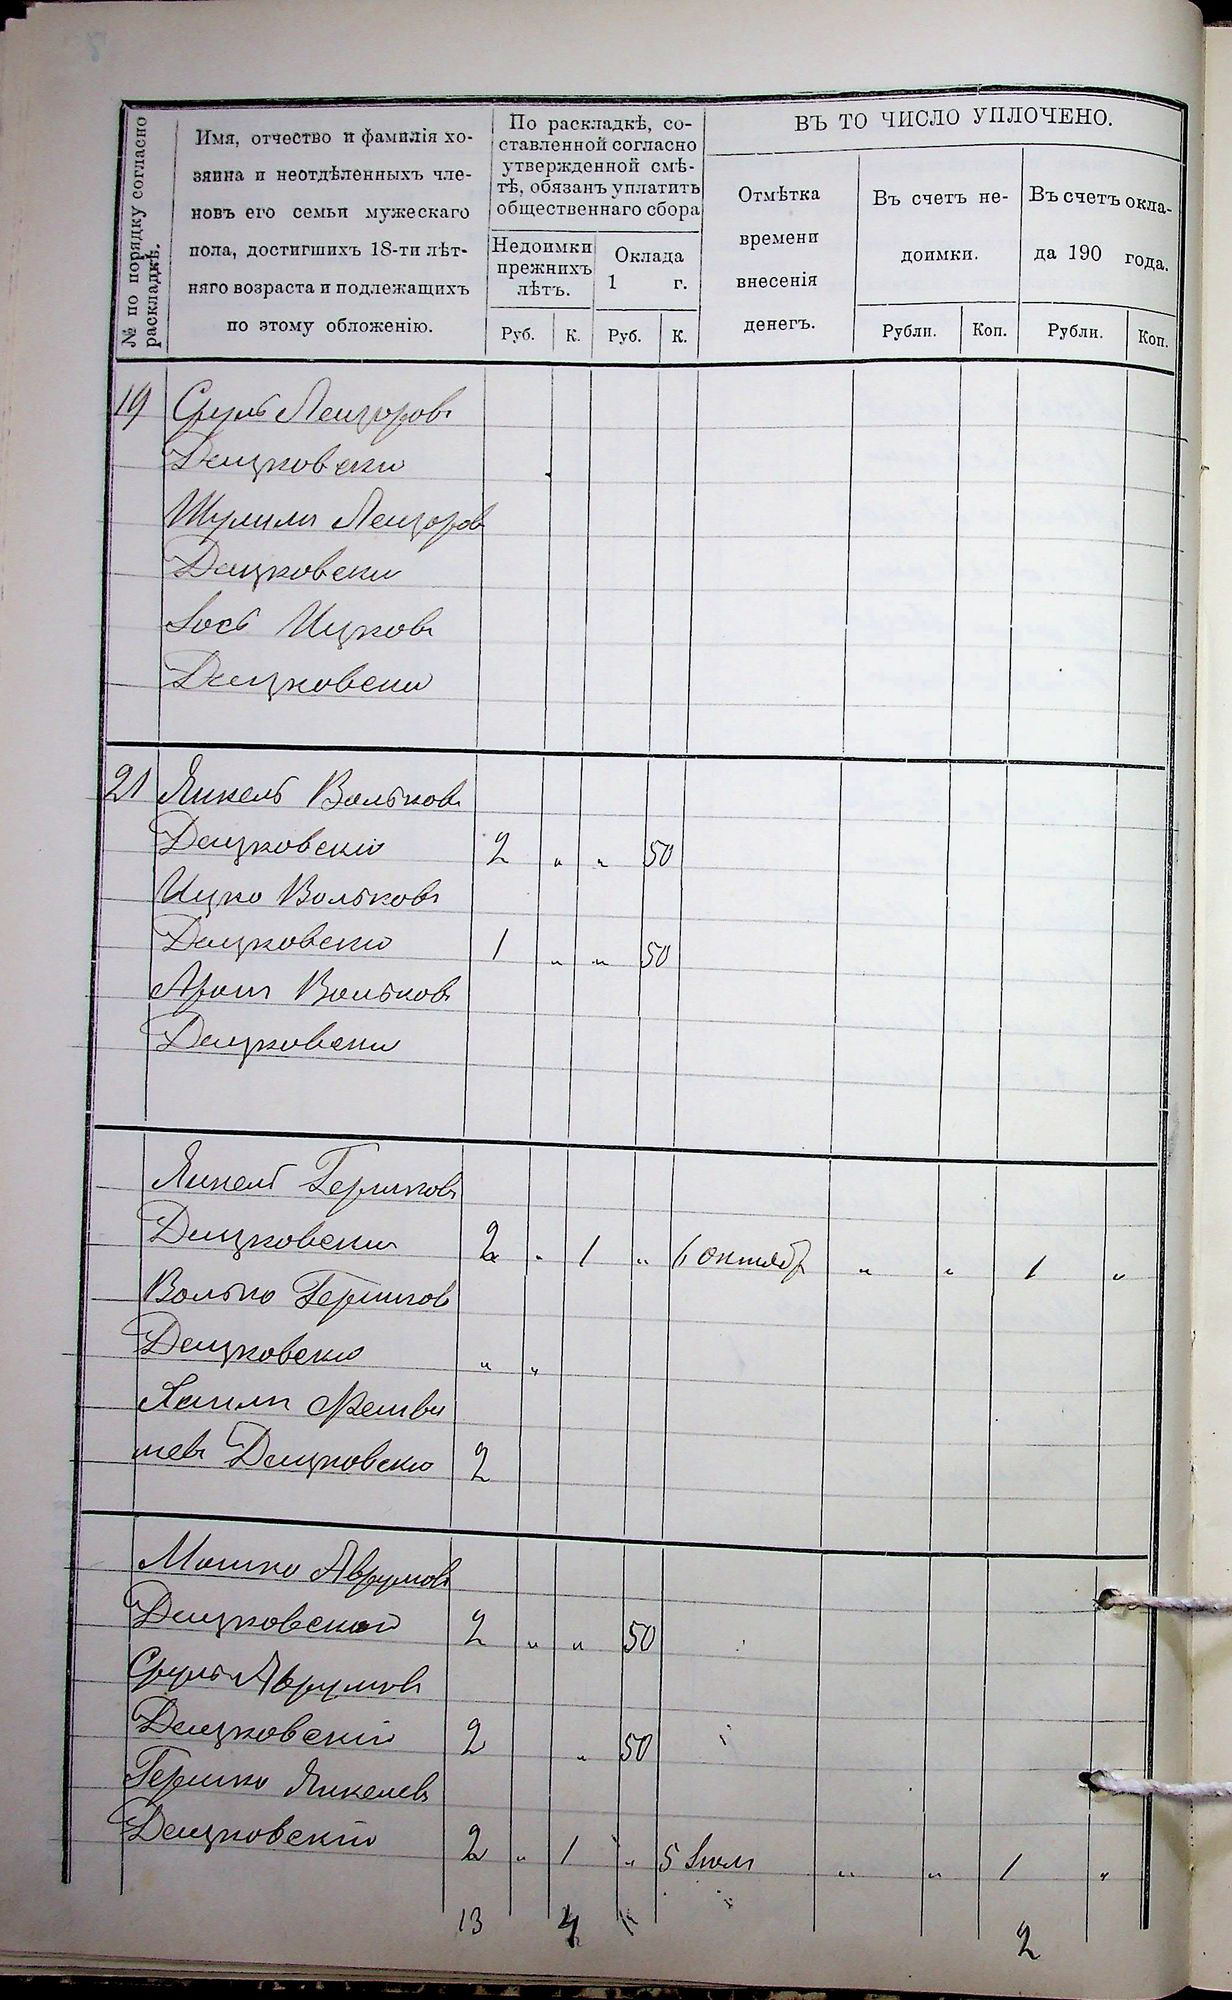 № по порядку согласно раскладкѣ.
Имя, отчество и фамилія хо-
зяина и неотдѣленныхъ чле-
новъ его семьи мужескаго
пола, достигшихъ 18-ти лѣт-
няго возраста и подлежащихъ
по этому обложенію.
По раскладкѣ, со-
ставленной согласно
утвержденной смѣ-
тѣ, обязанъ уплатить
общественнаго сбора
Недоимки
прежнихъ
лѣтъ.
Оклада
1 г.
Руб. К. Руб. К.
ВЪ ТО ЧИСЛО УПЛОЧЕНО.
Отмѣтка
времени
внесенія
денегъ.
Въ счетъ не-
доимки.
Въ счетъ окла-
да 190 года.
Рубли. Коп. Рубли. Коп.
19 Сруль Лейзоровъ
Дацковски
Шулимъ Лейзоровъ
Дацковски
Іось Ицковъ
Дацковски
21 Янкель Вольковъ
Дацковскій 2 „ „ 50
Ицко Вольковъ
Дацковскій 1 „ „ 50
Аронъ Вольковъ
Дацковски
Янкель Гершковъ
Дацковски 2 „ 1 „ 6 октябр „ „ 1 „
Волько Гершковъ
Дацковскій „ „
Хаимъ
левъ Дацковскій 2
Мошко Аврумовъ
Дацковской 2 „ „ 50
Сруль Аврумовъ
Дацковскій 2 „ 50
Гершко Янкелевъ
Дацковскій 2 „ 1 „ 5 Іюля „ „ 1 „
13 4 2